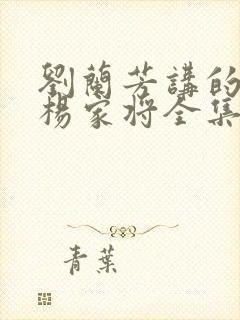 劉蘭芳講的
楊家将全集
青葉